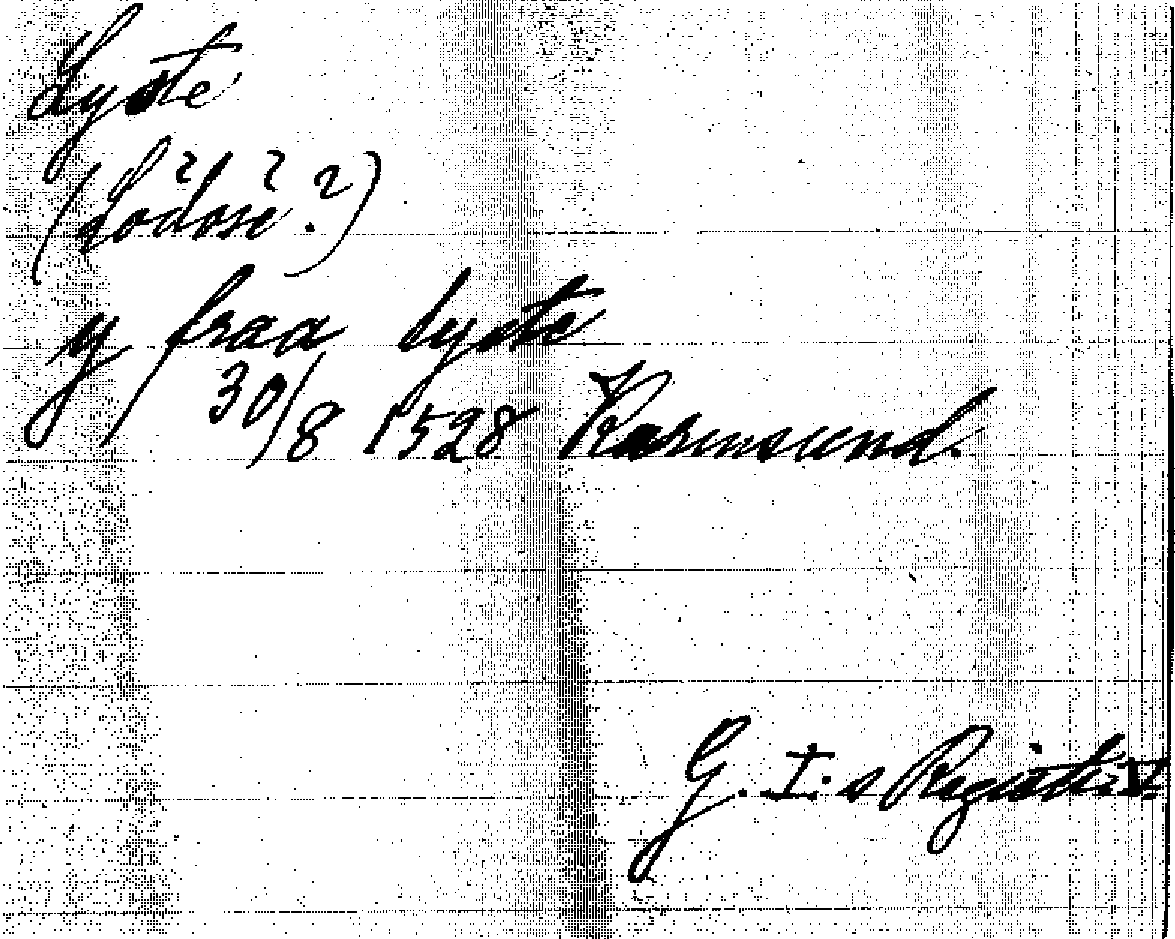 Lyste
(Lödöse?)
y fraa lyste
30/8 1528
G. I:s Registr. V.